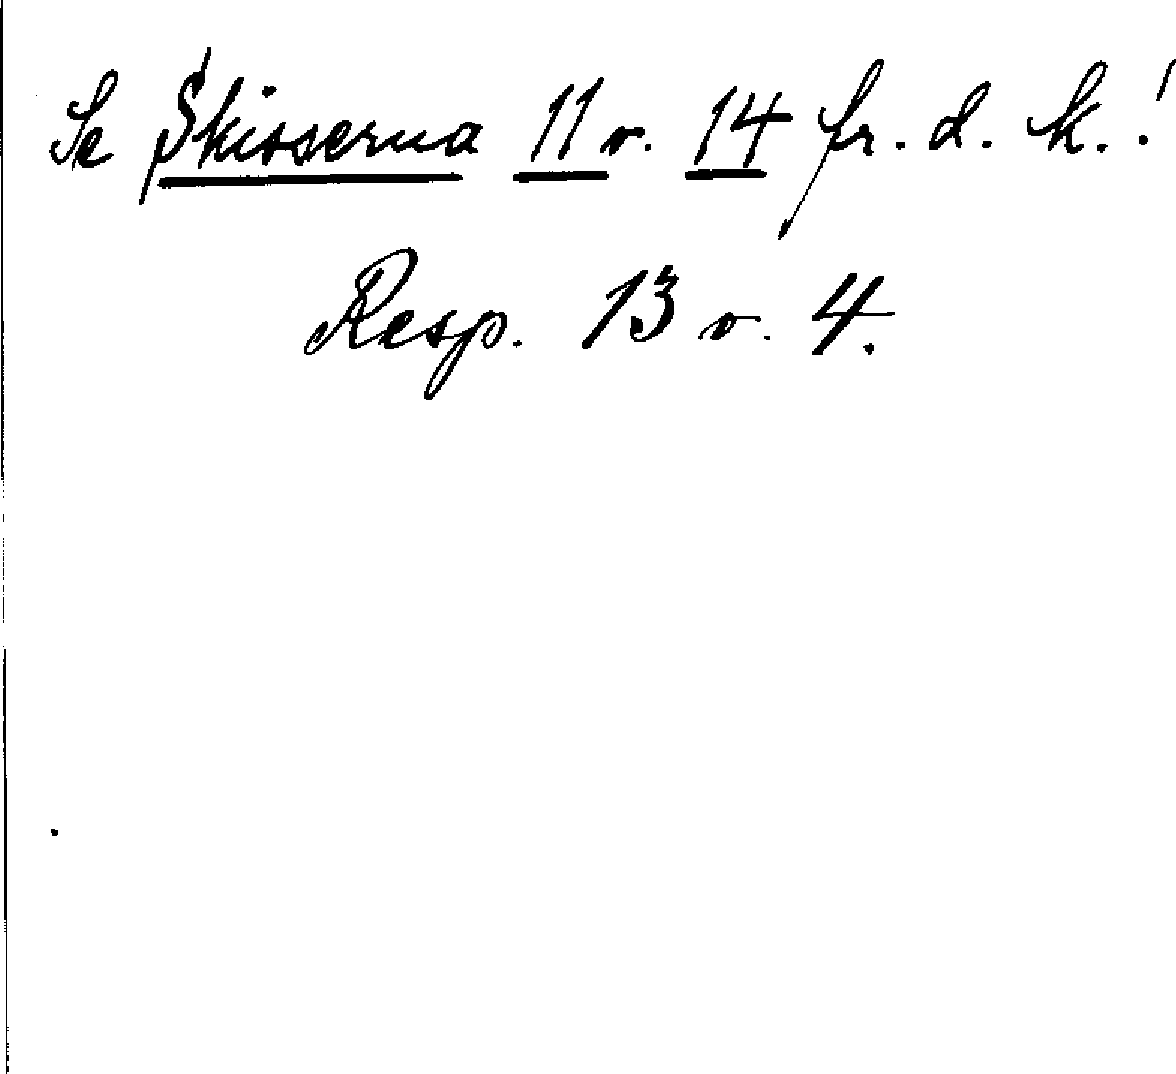 Se Skisserna 11 o. 14 fr. d. k.!
Resp. 13 o. 4.